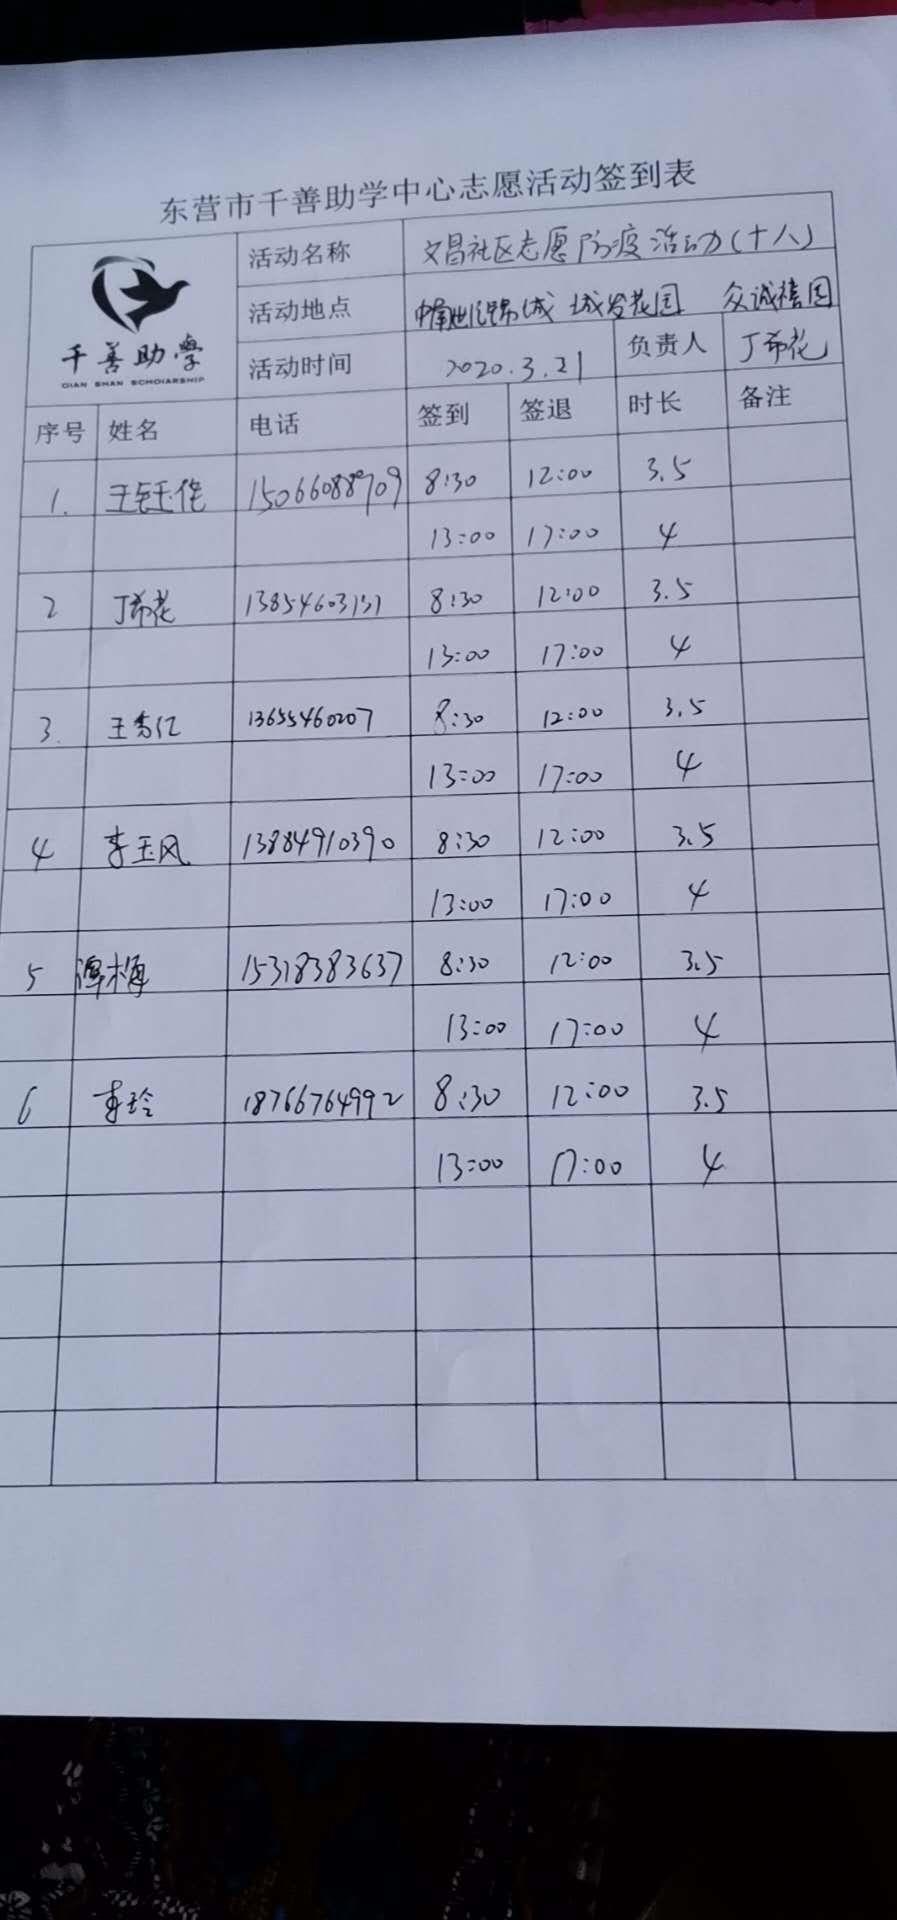 东营市千善助学中心志愿活动签到表
千善助学
QIAN SHAN SCHOLARSHIP
活动名称 文昌社区志愿防疫活动(十八)
活动地点 城 城发花园 众诚禧园
活动时间 2020.3.21 负责人 丁希花
序号 姓名 电话 签到 签退 时长 备注
1. 王钰 15066088909 8:30 12:00 3.5
13:00 17:00 4
2 丁希花 13854603131 8:30 12:00 3.5
13:00 17:00 4
3. 王秀仁 13655460207 8:30 12:00 3.5
13:00 17:00 4
4 李玉风 13884910390 8:30 12:00 3.5
13:00 17:00 4
5 谭梅 15318383637 8:30 12:00 3.5
13:00 17:00 4
6 李玲 18766764992 8:30 12:00 3.5
13:00 17:00 4